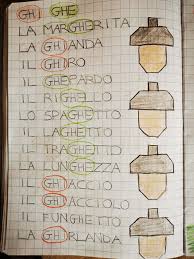 GHI GHE
LA MARGHERITA
LA GHIANDA
IL GHIRO
IL GHEPARDO
IL RIGHELLO
LO SPAGHETTO
IL LAGHETTO
IL TRAGHETTO
LA LUNGHEZZA
IL GHIACCIO
IL GHIACCIOLO
IL FUNGHETTO
LA GHIRLANDA